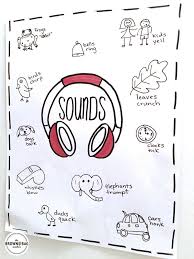 bells
ring
kids
yell
birds
chirp
SOUNDS
leaves
crunch
dogs
bark
clocks
tick
whistles
blow
elephants
trumpet
ducks
quack
cars
honk
BROWN BAG